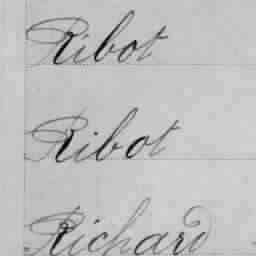 Ribot
Ribot
Richard